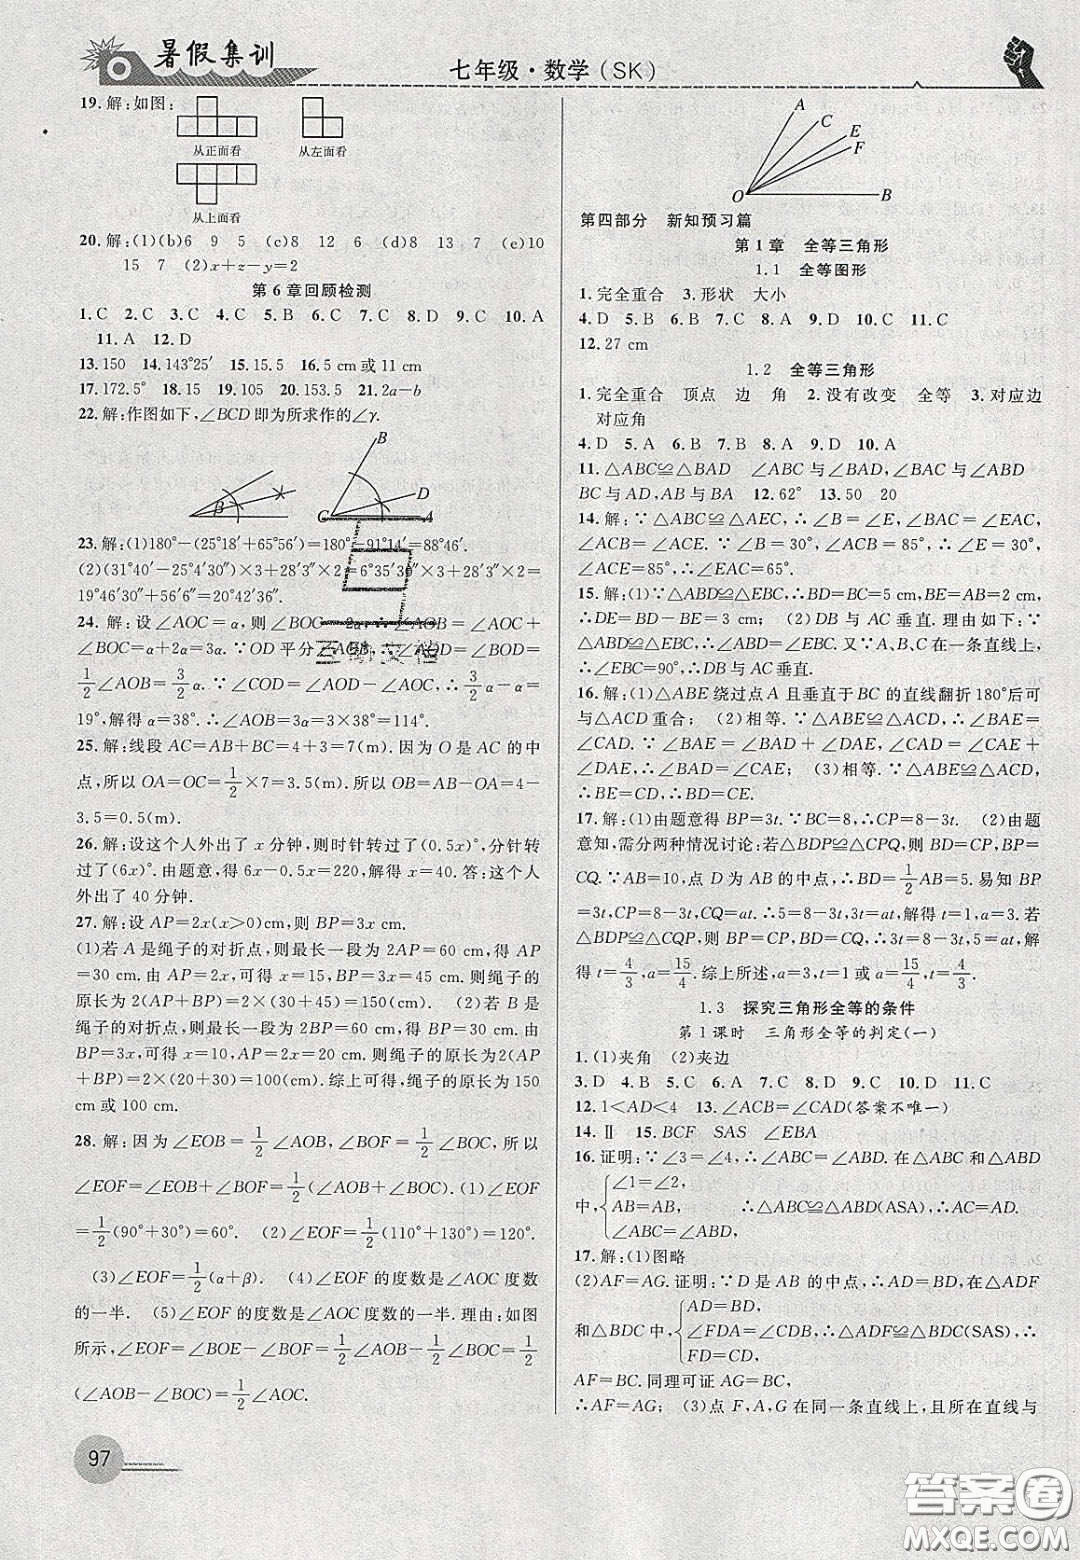 暑假集训
七年级·数学(SK)
19.解:如图:
从正面看 从左面看
从上面看
20.解:(1)(b)6 9 5 (c)8 12 6 (d)8 13 7 (e)10
15 7 (2)x+z-y=2
第6章回顾检测
1.C 2.C 3.C 4.C 5.B 6.C 7.D 8.C 9.C 10.A
11.A 12.D
13.150 14.143°25′ 15.15.5 16.5 cm或11 cm
17.172.5° 18.15 19.105 20.153.5 21.2a-b
22.解:作图如下,∠BCD即为所求作的∠γ.
B
β
D
C A
23.解:(1)180°-(25°18′+65°56′)=180°-91°14′=88°46′.
(2)(31°40′38″-25°4′30″)×3+28′3″×2=6°35′30″×3+28′3″×2=
19°46′30″+56′6″=20°42′36″.
24.解:设∠AOC=α,则∠BOC=2α,∴∠AOB=∠AOC+
∠BOC=α+2α=3α.∵OD平分∠AOB,∴∠AOD=
1/2∠AOB=3/2α.∵∠COD=∠AOD-∠AOC,∴3/2α-α=
19°,解得α=38°.∴∠AOB=3α=3×38°=114°.
25.解:线段AC=AB+BC=4+3=7(m).因为O是AC的中
点,所以OA=OC=1/2×7=3.5(m).所以OB=AB-OA=4-
3.5=0.5(m).
26.解:设这个人外出了x分钟,则时针转过了(0.5x)°,分针转
过了(6x)°.由题意,得6x-0.5x=220,解得x=40.答:这个人
外出了40分钟.
27.解:设AP=2x(x>0)cm,则BP=3x cm.
(1)若A是绳子的对折点,则最长一段为2AP=60 cm,得AP
=30 cm.由AP=2x,可得x=15,BP=3x=45 cm.则绳子的
原长为2(AP+BP)=2×(30+45)=150(cm). (2)若B是
绳子的对折点,则最长一段为2BP=60 cm,得BP=30 cm.由
BP=3x,可得x=10,AP=2x=20 cm.则绳子的原长为2(AP
+BP)=2×(20+30)=100(cm).综上可得,绳子的原长为150
cm或100 cm.
28.解:因为∠EOB=1/2∠AOB,∠BOF=1/2∠BOC,所以
∠EOF=∠EOB+∠BOF=1/2(∠AOB+∠BOC).(1)∠EOF=
1/2(90°+30°)=60°. (2)∠EOF=1/2(110°+130°)=120°.
(3)∠EOF=1/2(α+β). (4)∠EOF的度数是∠AOC度数
的一半. (5)∠EOF的度数是∠AOC度数的一半.理由:如图
所示,∠EOF=∠BOE-∠BOF=1/2∠AOB-1/2∠BOC=1/2
(∠AOB-∠BOC)=1/2∠AOC.
97
A
C
E
F
O B
第四部分 新知预习篇
第1章 全等三角形
1.1 全等图形
1.完全重合 3.形状 大小
4.D 5.B 6.C 7.C 8.A 9.D 10.C 11.C
12.27 cm
1.2 全等三角形
1.完全重合 顶点 边 角 2.没有改变 全等 3.对应边
对应角
4.D 5.A 6.B 7.B 8.A 9.D 10.A
11.△ABC≌△BAD ∠ABC与∠BAD,∠BAC与∠ABD
BC与AD,AB与BA 12.62° 13.50 20
14.解:∵△ABC≌△AEC,∴∠B=∠E,∠BAC=∠EAC,
∠ACB=∠ACE.∵∠B=30°,∠ACB=85°,∴∠E=30°,
∠ACE=85°,∴∠EAC=65°.
15.解:(1)∵△ABC≌△EBC,∴BD=BC=5 cm,BE=AB=2 cm,
∴DE=BD-BE=3 cm; (2)DB与AC垂直.理由如下:∵
△ABD≌△EBC,∴∠ABD=∠EBC.又∵A、B、C在一条直线上,
∴∠EBC=90°,∴DB与AC垂直.
16.解:(1)△ABE绕过点A且垂直于BC的直线翻折180°后可
与△ACD重合; (2)相等.∵△ABE≌△ACD,∴∠BAE=
∠CAD.∵∠BAE=∠BAD+∠DAE,∠CAD=∠CAE+
∠DAE,∴∠BAD=∠CAE; (3)相等.∵△ABE≌△ACD,
∴BE=CD,∴BD=CE.
17.解:(1)由题意得BP=3t.∵BC=8,∴CP=8-3t. (2)由题
意知,需分两种情况讨论:若△BDP≌△CPQ,则BP=CQ,BD=
CP.∵AB=10,点D为AB的中点,∴BD=1/2AB=5.易知BP
=3t,CP=8-3t,CQ=at.∴5=8-3t,3t=at,解得t=1,a=3.若
△BDP≌△CQP,则BP=CP,BD=CQ.∴3t=8-3t,5=at,解
得t=4/3,a=15/4.综上所述,a=3,t=1或a=15/4,t=4/3.
1.3 探究三角形全等的条件
第1课时 三角形全等的判定(一)
1.(1)夹角 (2)夹边
3.D 4.B 5.B 6.A 7.B 8.D 9.C 10.D 11.C
12.1<AD<4 13.∠ACB=∠CAD(答案不唯一)
14.Ⅱ 15.BCF SAS ∠EBA
16.证明:∵∠3=∠4,∴∠ABC=∠ABD.在△ABC和△ABD
中,{∠1=∠2,
AB=AB, ∴△ABC≌△ABD(ASA),∴AC=AD.
∠ABC=∠ABD,
17.解:(1)图略
(2)AF=AG.证明:∵D是AB的中点,∴AD=BD,在△ADF
和△BDC中,{AD=BD,
∠FDA=∠CDB,∴△ADF≌△BDC(SAS),∴
FD=CD,
AF=BC.同理可证AG=BC,
∴AF=AG; (3)点F,A,G在同一条直线上,且所在直线与
答案圈
MXQE.COM